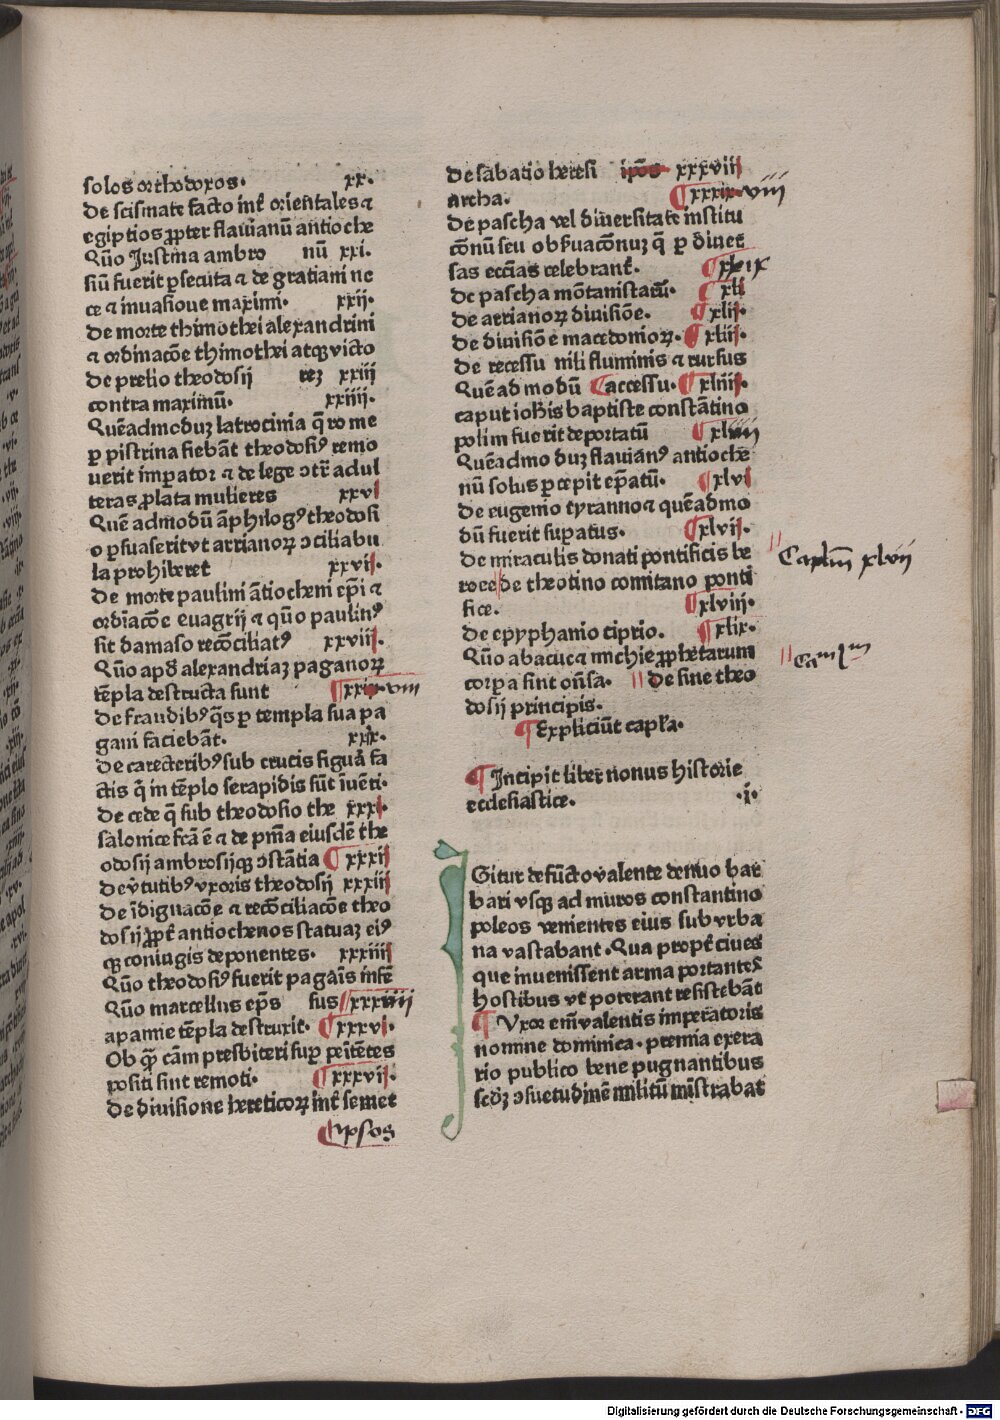 solos orthodoxos. xx.
De scismate facto int̄ orientales ⁊
egiptios ꝓpter flauianū antioche
Quō Justina ambro nū xxi.
siū fuerit ꝑsecuta ⁊ de gratiani ne
ce ⁊ inuasione maximi. xxij.
de morte thimothei alexandrini
⁊ ordinacōe thimothei atqꝫ victo
de prelio theodosij reꝫ xxiij
contra maximū. xxiiij.
Quēadmoduꝫ latrocinia q̄ ro me
ꝑ pistrina fiebāt theodosiꝰ remo
uerit imꝑator ⁊ de lege ↄtr̄ adul
teras ꝓlata mulieres xxvj
Quē admodū āphilogꝰ theodosi
o ꝑsuaserit vt arrianoꝝ ↄciliabu
la prohiberet xxvij.
de morte paulini ātiocheni ep̄i ⁊
ordīacōe euagrij ⁊ quō paulinꝰ
sit damaso recōciliatꝰ xxviij.
Quō apd̄ alexandriaꝫ paganoꝝ
tēpla destructa sunt ¶xxix viii
de fraudibꝰ q̄s ꝑ templa sua pa
gani faciebāt. xxx.
de caracteribꝰ sub crucis figura fa
ctis q̄ in tēplo serapidis sūt īuēti.
de cede q̄ sub theodosio the xxxj.
salonice fcā ē ⁊ de pm̄a eiusdē the
odosij ambrosijqꝫ ↄstātia ¶xxxij
de v̄tutibꝰ vxoris theodosij xxxiij
de īdignacōe ⁊ recōciliacōe theo
dosij ꝓpt̄ antiochenos statuaꝫ eiꝰ
qꝫ coniugis deponentes. xxxiiij
Quō theodosiꝰ fuerit pagāis infē
Quō marcellus ep̄s sus xxxiiiij
apamie tēpla destruxit. ¶xxxvj.
Ob quā cām presbiteri suꝑ peītētes
positi sint remoti. ¶xxxvij.
de diuisione hereticoꝝ int̄ semet
ipsos
de sabatio heresi ip̄os xxxviij
archa. ¶xxxix viii
de pascha vel diuersitate institu
cōnū seu obẜuacōnuꝫ q̄ ꝑ diuer
sas ecc̄ias celebrant̄. ¶xl ix
de pascha mōtanistaꝝ. ¶xli
de arrianoꝝ diuisiōe. ¶xlij.
de diuisiōe macedonioꝝ. ¶xliij.
de recessu nili fluminis ⁊ rursus
Quēadmodū ¶accessu. ¶xliiij.
caput ioh̄is baptiste constātino
polim fuerit deportatū ¶xliiiij
Quēadmoduꝫ flauianꝰ antioche
nū solus ꝑcepit ep̄atū. ¶xlvj
de eugenio tyranno ⁊ quēadmo
dū fuerit suꝑatus. ¶xlvij.
de miraculis donati pontificis be
roce de theotino comitano ponti
fice. ¶xlviij.
de epyphanio ciprio. ¶xlix.
Quō abacuc ⁊ michie ꝓphetarum
corpora sint onsa. de fine theo
dosij principis.
¶Expliciūt capl̄a.
¶Incipit liber nonus historie
ecclesiastice. .i.
IGitur defūcto valente denuo bar
bari vsqꝫ ad muros constantino
poleos venientes eius sub vrba
na vastabant. Qua propt̄ ciues
que inuenissent arma portantes
hostibus vt poterant resistebāt
¶ Vxor em̄ valentis imperatoris
nomine dominica. premia exera
rio publico bene pugnantibus
scd̄ꝫ ↄsuetudinē militū mīstrabat
Caplm̄ xlvii
Digitalisierung gefördert durch die Deutsche Forschungsgemeinschaft - DFG